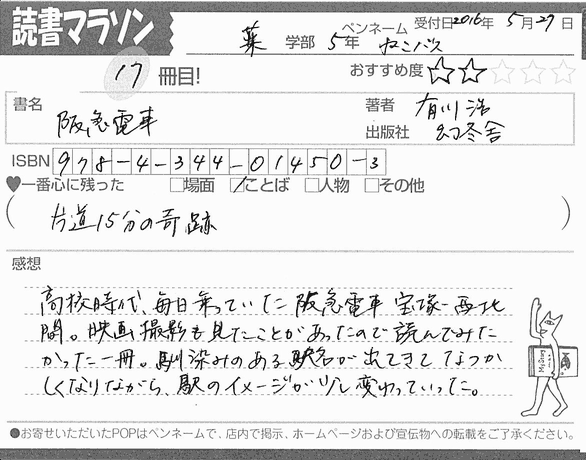 読書マラソン
薬 学部 5年 ペンネーム ねこバス 受付日2016年 5月27日
17 冊目! おすすめ度
書名 阪急電車
著者 有川浩
出版社 幻冬舎
ISBN 978-4-344-01450-3
♥一番心に残った □場面 ☑ことば □人物 □その他
(片道15分の奇跡)
感想
高校時代、毎日乗っていた阪急電車 宝塚-西北
間。映画撮影も見たことがあったので読んでみた
かった一冊。馴染みのある駅名が出てきてなつか
しくなりながら、駅のイメージが少し変わっていった。
●お寄せいただいたPOPはペンネームで、店内で掲示、ホームページおよび宣伝物への転載をご了承ください。